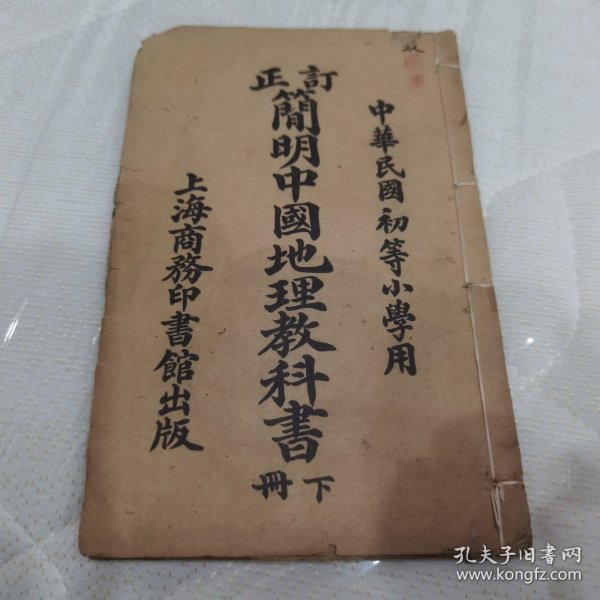 中華民國初等小學用
訂正
簡明中國地理教科書
下冊
上海商務印書館出版
孔夫子旧书网
www.kongfz.com